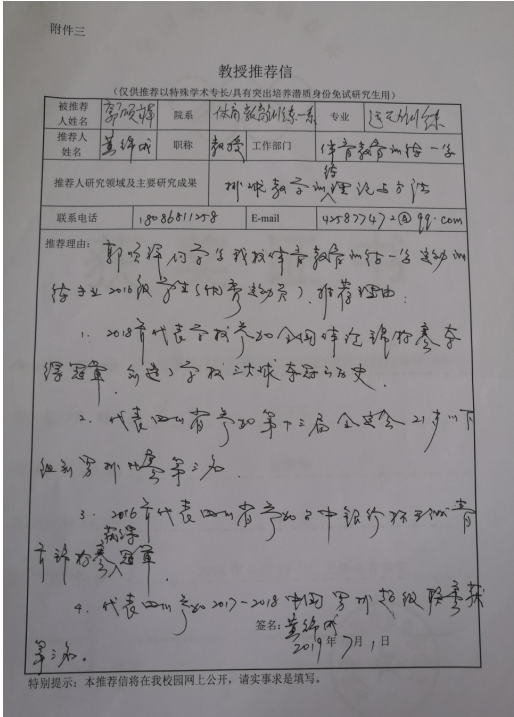 附件三
教授推荐信
（仅供推荐以特殊学术专长/具有突出培养潜质身份免试研究生用）
被推荐人姓名 郭颂 院系 体育教育训练一系 专业 运动训练
推荐人姓名 黄锦成 职称 教授 工作部门 体育教育训练一学
推荐人研究领域及主要研究成果 排球教学训练理论与方法
联系电话 18086811258 E-mail 425877472@qq.com
推荐理由：郭颂 同学 我校体育教育训练一学运动训
练专业2016级学生（优秀运动员）推荐理由：
1．2018年代表学校参加全国体院锦标赛夺
得冠军，创造了学校三大球夺冠历史．
2．代表四川省参加第十三届全运会21岁以下
组别男排比赛第三名．
3．2016年代表四川省参加中银行杯 青
年锦标赛获得冠军．
4．代表四川参加2017-2018中国男排超级联赛获
第三名．
签名：黄锦成
2019年7月1日
特别提示：本推荐信将在我校园网上公开，请实事求是填写。